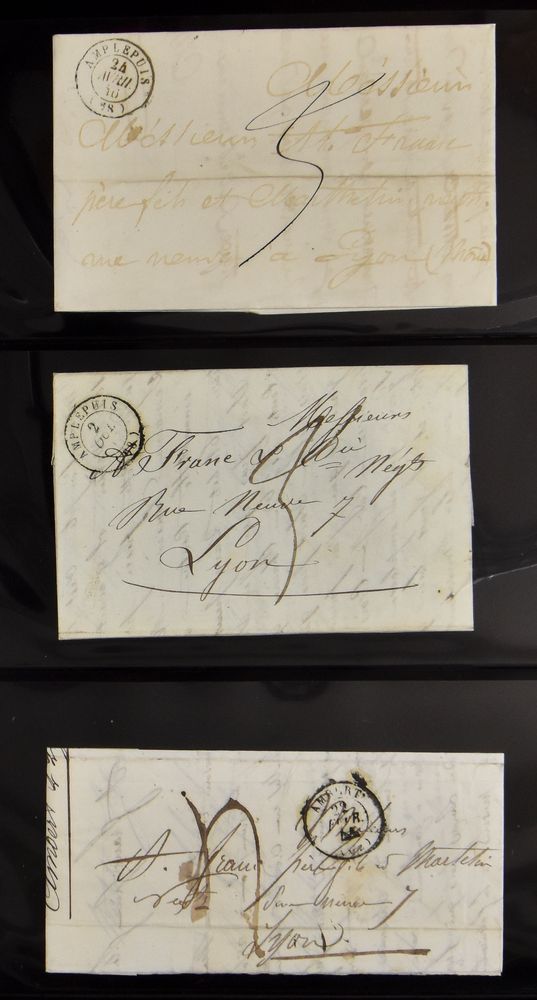 AMPLEPUIS
24
AVRIL
(68)
Messieurs
Messieurs At. Franc
père fils et Martelin négts
rue neuve à Lyon (Rhône)
3
AMPLEPUIS
2
OCT
(68)
Messieurs
A Franc & Cie
Négts
Rue Neuve 7
Lyon
3
AMBERT
22
FEVR.
Ambert
A. Franc père fils & Martelin
négts rue neuve 7
Lyon